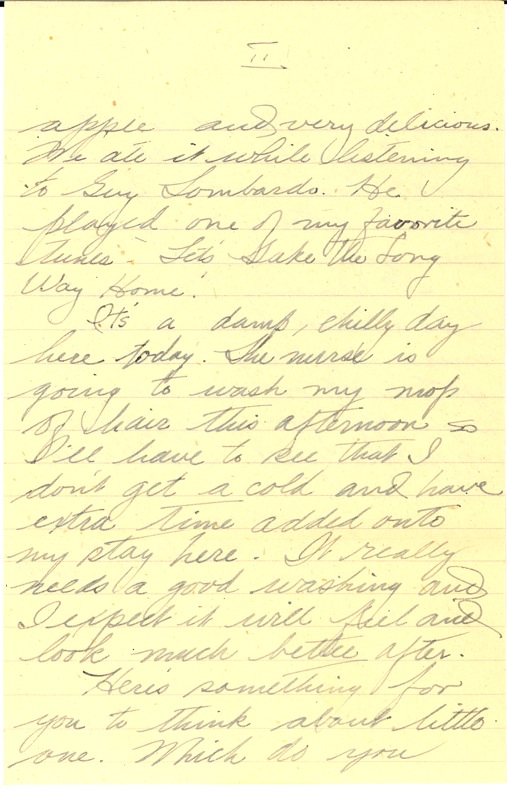 II
apple and very delicious.
We ate it while listening
to Guy Lombardo. He
played one of my favorite
tunes - "Let's Take the Long
Way Home".
It's a damp, chilly day
here today. The nurse is
going to wash my mop
of hair this afternoon so
I'll have to see that I
don't get a cold and have
extra time added onto
my stay here. It really
needs a good washing and
I expect it will feel and
look much better after.
Here's something for
you to think about little
one. Which do you